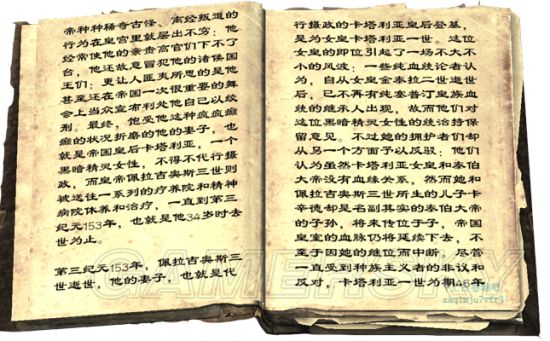 帝种种稀奇古怪、离经叛道的
行为在皇宫里就层出不穷：他
经常使他的亲贵高官们下不了
台，他还故意冒犯他的诸侯国
王们；更让人匪夷所思的是他
甚至还在帝国一次很重要的舞
会上当众宣布判处他自己以绞
刑。最终，饱受他这种疯疯癫
癫的状况折磨的他的妻子，也
就是帝国皇后卡塔利亚，一个
黑暗精灵女性，不得不代行摄
政，而皇帝佩拉吉奥斯三世则
被送往一系列的疗养院和精神
病院休养和治疗，一直到第三
纪元153年，也就是他34岁时去
世为止。
第三纪元153年，佩拉吉奥斯三
世逝世，他的妻子，也就是代
行摄政的卡塔利亚皇后登基，
是为女皇卡塔利亚一世。这位
女皇的即位引起了一场不大不
小的风波：一些纯血统论者认
为，自从女皇金泰拉二世逝世
后，已不再有纯塞普汀皇族血
统的继承人出现，故而他们对
这位黑暗精灵女性的统治持保
留意见。不过她的拥护者们却
从另一个方面予以反驳：他们
认为虽然卡塔利亚女皇和泰伯
大帝没有血缘关系，然而她和
佩拉吉奥斯三世所生的儿子卡
辛德却是名副其实的泰伯大帝
的子孙，将来传位于子，帝国
皇室的血脉仍将延续下去，不
至于因她的继位而中断。尽管
一直受到种族主义者的非议和
反对，卡塔利亚一世为期46年
GAMERSKY